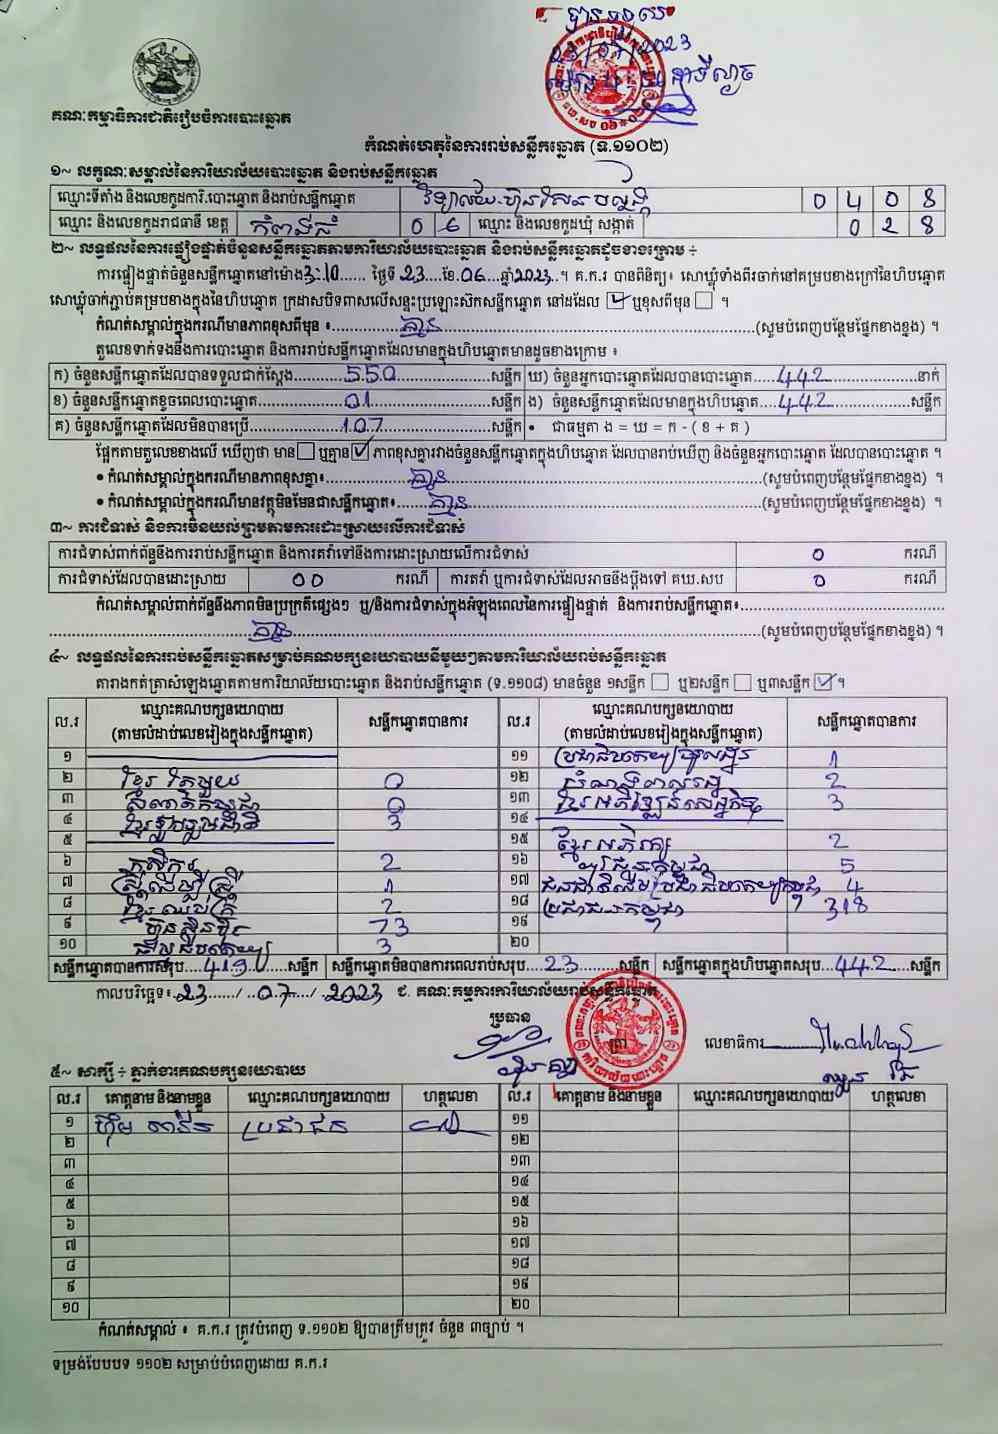 បានទទួល
23/07/2023
គណៈកម្មាធិការជាតិរៀបចំការបោះឆ្នោត
កំណត់ហេតុនៃការរាប់សន្លឹកឆ្នោត (ទ.១១០២)
១~ លក្ខណៈសម្គាល់នៃការិយាល័យបោះឆ្នោត និងរាប់សន្លឹកឆ្នោត
ឈ្មោះទីតាំង និងលេខកូដការិ.បោះឆ្នោត និងរាប់សន្លឹកឆ្នោត វិទ្យាល័យ ហ៊ុន សែន 0 4 0 8
ឈ្មោះ និងលេខកូដរាជធានី ខេត្ត កំពង់ធំ 0 6 ឈ្មោះ និងលេខកូដឃុំ សង្កាត់ 0 2 8
២~ លទ្ធផលនៃការផ្ទៀងផ្ទាត់ចំនួនសន្លឹកឆ្នោតតាមការិយាល័យបោះឆ្នោត និងរាប់សន្លឹកឆ្នោតដូចខាងក្រោម ÷
ការផ្ទៀងផ្ទាត់ចំនួនសន្លឹកឆ្នោតនៅម៉ោង 3:10 ថ្ងៃទី 23 ខែ 06 ឆ្នាំ 2023 ។ គ.ក.រ បានពិនិត្យ៖ សោឃ្លុំទាំងពីរចាក់នៅគម្របខាងក្រៅនៃហិបឆ្នោត
សោឃ្លុំចាក់ភ្ជាប់គម្របខាងក្នុងនៃហិបឆ្នោត ក្រដាសបិទពាសលើសន្ទះប្រឡោះស៊កសន្លឹកឆ្នោត នៅដដែល ☑ ឬខុសពីមុន ☐ ។
កំណត់សម្គាល់ក្នុងករណីមានភាពខុសពីមុន ៖ គ្មាន (សូមបំពេញបន្ថែមផ្នែកខាងខ្នង) ។
តួលេខទាក់ទងនឹងការបោះឆ្នោត និងការរាប់សន្លឹកឆ្នោតដែលមានក្នុងហិបឆ្នោតមានដូចខាងក្រោម ៖
ក) ចំនួនសន្លឹកឆ្នោតដែលបានទទួលជាក់ស្តែង 550 សន្លឹក ឃ) ចំនួនអ្នកបោះឆ្នោតដែលបានបោះឆ្នោត 442 នាក់
ខ) ចំនួនសន្លឹកឆ្នោតខូចពេលបោះឆ្នោត 01 សន្លឹក ង) ចំនួនសន្លឹកឆ្នោតដែលមានក្នុងហិបឆ្នោត 442 សន្លឹក
គ) ចំនួនសន្លឹកឆ្នោតដែលមិនបានប្រើ 107 សន្លឹក • ជាធម្មតា ង = ឃ = ក - ( ខ + គ )
ផ្អែកតាមតួលេខខាងលើ ឃើញថា មាន ☐ ឬគ្មាន ☑ ភាពខុសគ្នារវាងចំនួនសន្លឹកឆ្នោតក្នុងហិបឆ្នោត ដែលបានរាប់ឃើញ និងចំនួនអ្នកបោះឆ្នោត ដែលបានបោះឆ្នោត ។
• កំណត់សម្គាល់ក្នុងករណីមានភាពខុសគ្នា៖ គ្មាន (សូមបំពេញបន្ថែមផ្នែកខាងខ្នង) ។
• កំណត់សម្គាល់ក្នុងករណីមានវត្ថុមិនមែនជាសន្លឹកឆ្នោត៖ គ្មាន (សូមបំពេញបន្ថែមផ្នែកខាងខ្នង) ។
៣~ ការជំទាស់ និងការមិនយល់ព្រមតាមការដោះស្រាយលើការជំទាស់
ការជំទាស់ពាក់ព័ន្ធនឹងការរាប់សន្លឹកឆ្នោត និងការតវ៉ាទៅនឹងការដោះស្រាយលើការជំទាស់ 0 ករណី
ការជំទាស់ដែលបានដោះស្រាយ 00 ករណី ការតវ៉ា ឬការជំទាស់ដែលអាចនឹងប្តឹងទៅ គឃ.សប 0 ករណី
កំណត់សម្គាល់ពាក់ព័ន្ធនឹងភាពមិនប្រក្រតីផ្សេងៗ ឬ/និងការជំទាស់ក្នុងអំឡុងពេលនៃការផ្ទៀងផ្ទាត់ និងការរាប់សន្លឹកឆ្នោត៖
គ្មាន (សូមបំពេញបន្ថែមផ្នែកខាងខ្នង) ។
៤~ លទ្ធផលនៃការរាប់សន្លឹកឆ្នោតសម្រាប់គណបក្សនយោបាយនីមួយៗតាមការិយាល័យរាប់សន្លឹកឆ្នោត
តារាងកត់ត្រាសំឡេងឆ្នោតតាមការិយាល័យបោះឆ្នោត និងរាប់សន្លឹកឆ្នោត (ទ.១១០៨) មានចំនួន ១សន្លឹក ☐ ឬ២សន្លឹក ☐ ឬ៣សន្លឹក ☑ ។
ល.រ ឈ្មោះគណបក្សនយោបាយ (តាមលំដាប់លេខរៀងក្នុងសន្លឹកឆ្នោត) សន្លឹកឆ្នោតបានការ ល.រ ឈ្មោះគណបក្សនយោបាយ (តាមលំដាប់លេខរៀងក្នុងសន្លឹកឆ្នោត) សន្លឹកឆ្នោតបានការ
១ ១១ ប្រជាធិបតេយ្យមូលដ្ឋាន 1
២ ខ្មែរ តែមួយ 0 ១២ 2
៣ សញ្ជាតិកម្ពុជា 0 ១៣ ខ្មែរអភិវឌ្ឍន៍សេដ្ឋកិច្ច 3
៤ ខ្មែររួបរួមជាតិ 3 ១៤
៥ ១៥ ខ្មែរអភិរក្ស 2
៦ កសិករ 2 ១៦ យុវជនកម្ពុជា 5
៧ ស្ត្រីដើម្បីស្ត្រី 1 ១៧ ជនជាតិដើមប្រជាធិបតេយ្យកម្ពុជា 4
៨ ខ្មែរឈប់ក្រ 2 ១៨ ប្រជាជនកម្ពុជា 318
៩ ហ៊្វុនស៊ិនប៉ិច 73 ១៩
១០ 3 ២០
សន្លឹកឆ្នោតបានការសរុប 419 សន្លឹក សន្លឹកឆ្នោតមិនបានការពេលរាប់សរុប 23 សន្លឹក សន្លឹកឆ្នោតក្នុងហិបឆ្នោតសរុប 442 សន្លឹក
កាលបរិច្ឆេទ៖ 23 / 07 / 2023 ជ. គណៈកម្មការការិយាល័យរាប់សន្លឹកឆ្នោត
ប្រធាន
ត្រា លេខាធិការ
៥~ សាក្សី ÷ ភ្នាក់ងារគណបក្សនយោបាយ
ល.រ គោត្តនាម និងនាមខ្លួន ឈ្មោះគណបក្សនយោបាយ ហត្ថលេខា ល.រ គោត្តនាម និងនាមខ្លួន ឈ្មោះគណបក្សនយោបាយ ហត្ថលេខា
១ ប្រជាជន ១១
២ ១២
៣ ១៣
៤ ១៤
៥ ១៥
៦ ១៦
៧ ១៧
៨ ១៨
៩ ១៩
១០ ២០
កំណត់សម្គាល់ ៖ គ.ក.រ ត្រូវបំពេញ ទ.១១០២ ឱ្យបានត្រឹមត្រូវ ចំនួន ៣ច្បាប់ ។
ទម្រង់បែបបទ ១១០២ សម្រាប់បំពេញដោយ គ.ក.រ